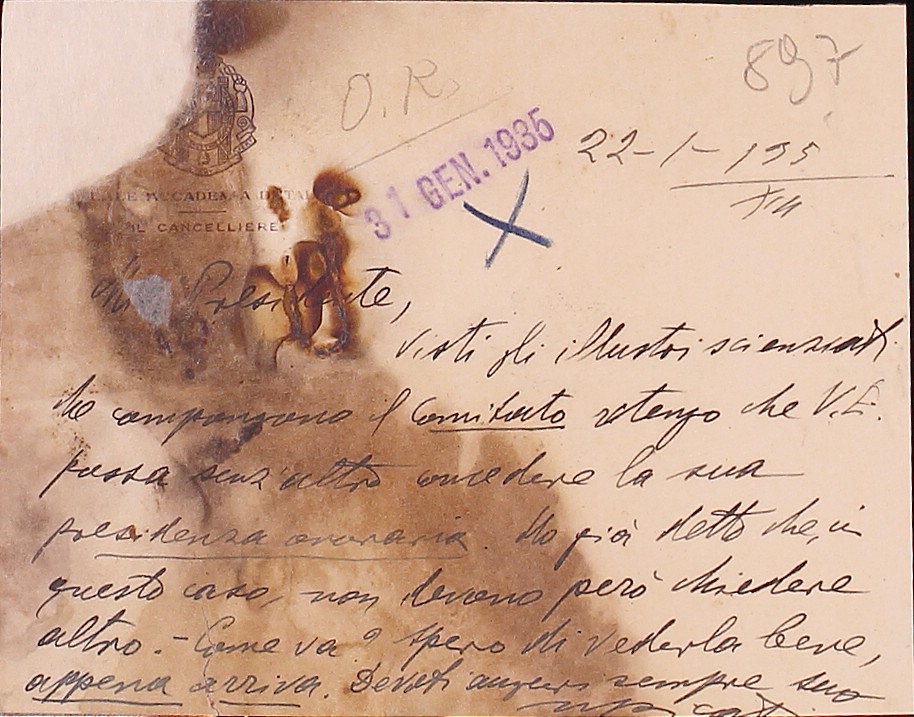 897
O. R.
22-1-135
XIII
31 GEN. 1935
REALE ACCADEMIA D'ITALIA
IL CANCELLIERE
Presidente,
Visti gli illustri scienziati
che compongono il Comitato ritengo che V. E.
possa senz'altro concedere la sua
presidenza onoraria. Ho già detto che, in
questo caso, non devono però chiedere
altro. - Come va? Spero di vederla bene,
appena arriva. Devoti auguri sempre suo